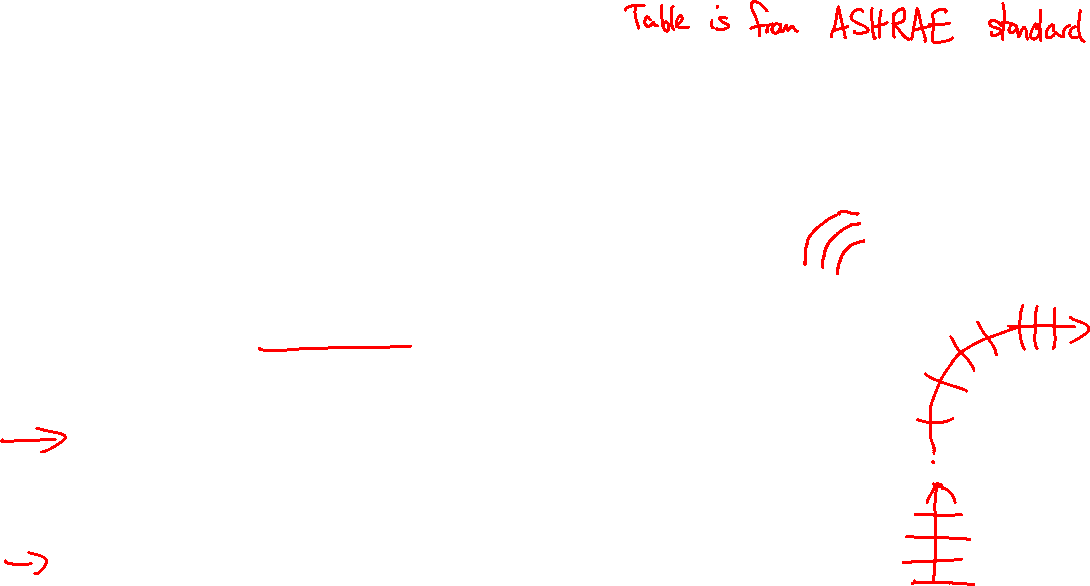 Table is from ASHRAE standard